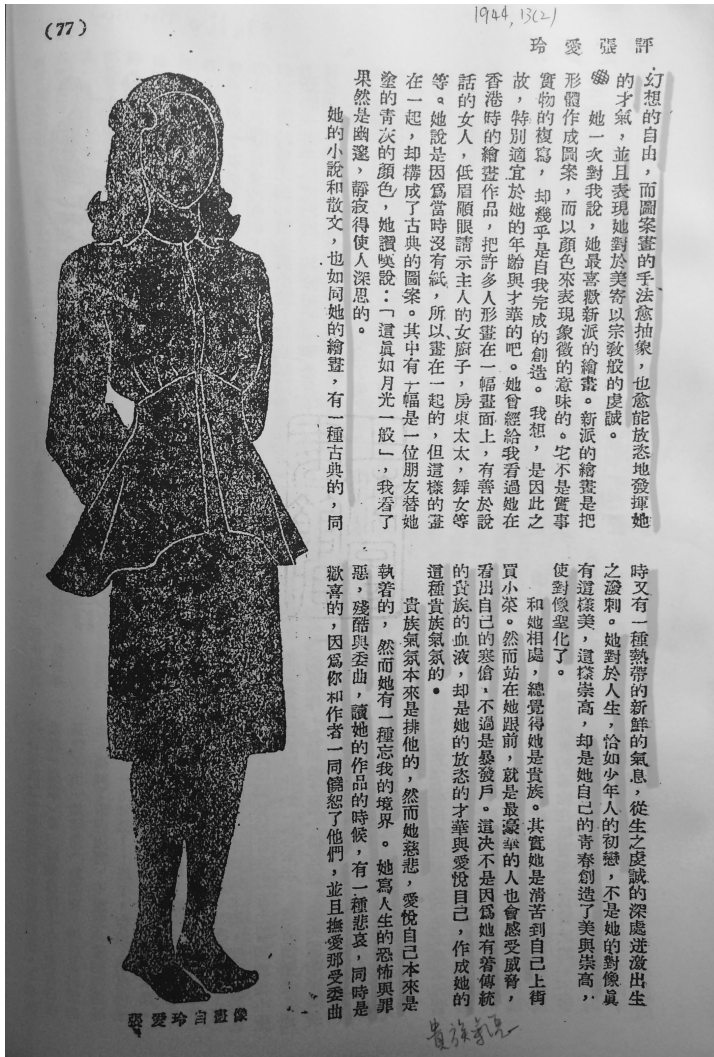 (77)
1944, 13(2)
評張愛玲
幻想的自由，而圖案畫的手法愈抽象，也愈能放恣地發揮她
的才氣，並且表現她對於美寄以宗教般的虔誠。
她一次對我說，她最喜歡新派的繪畫。新派的繪畫是把
形體作成圖案，而以顏色來表現象徵的意味的。它不是實事
實物的複寫，却幾乎是自我完成的創造。我想，是因此之
故，特別適宜於她的年齡與才華的吧。她曾經給我看過她在
香港時的繪畫作品，把許多人形畫在一幅畫面上，有善於說
話的女人，低眉順眼請示主人的女廚子，房東太太，舞女等
等。她說是因爲當時沒有紙，所以畫在一起的，但這樣的畫
在一起，却構成了古典的圖案。其中有一幅是一位朋友替她
塗的青灰的顏色，她讚嘆說：「這眞如月光一般」，我看了
果然是幽邃，靜寂得使人深思的。
她的小說和散文，也如同她的繪畫，有一種古典的，同
時又有一種熱帶的新鮮的氣息，從生之虔誠的深處迸激出生
之潑剌。她對於人生，恰如少年人的初戀，不是她的對像眞
有這樣美，這樣崇高，却是她自己的青春創造了美與崇高，
使對像聖化了。
和她相處，總覺得她是貴族。其實她是清苦到自己上街
買小菜。然而站在她跟前，就是最豪華的人也會感受威脅，
看出自己的寒傖，不過是暴發戶。這决不是因爲她有着傳統
的貴族的血液，却是她的放恣的才華與愛悅自己，作成她的
這種貴族氣氛的。
貴族氣氛本來是排他的，然而她慈悲，愛悅自己本來是
執着的，然而她有一種忘我的境界。她寫人生的恐怖與罪
惡，殘酷與委曲，讀她的作品的時候，有一種悲哀，同時是
歡喜的，因爲你和作者一同饒恕了他們，並且撫愛那受委曲
張愛玲自畫像
貴族氣氛